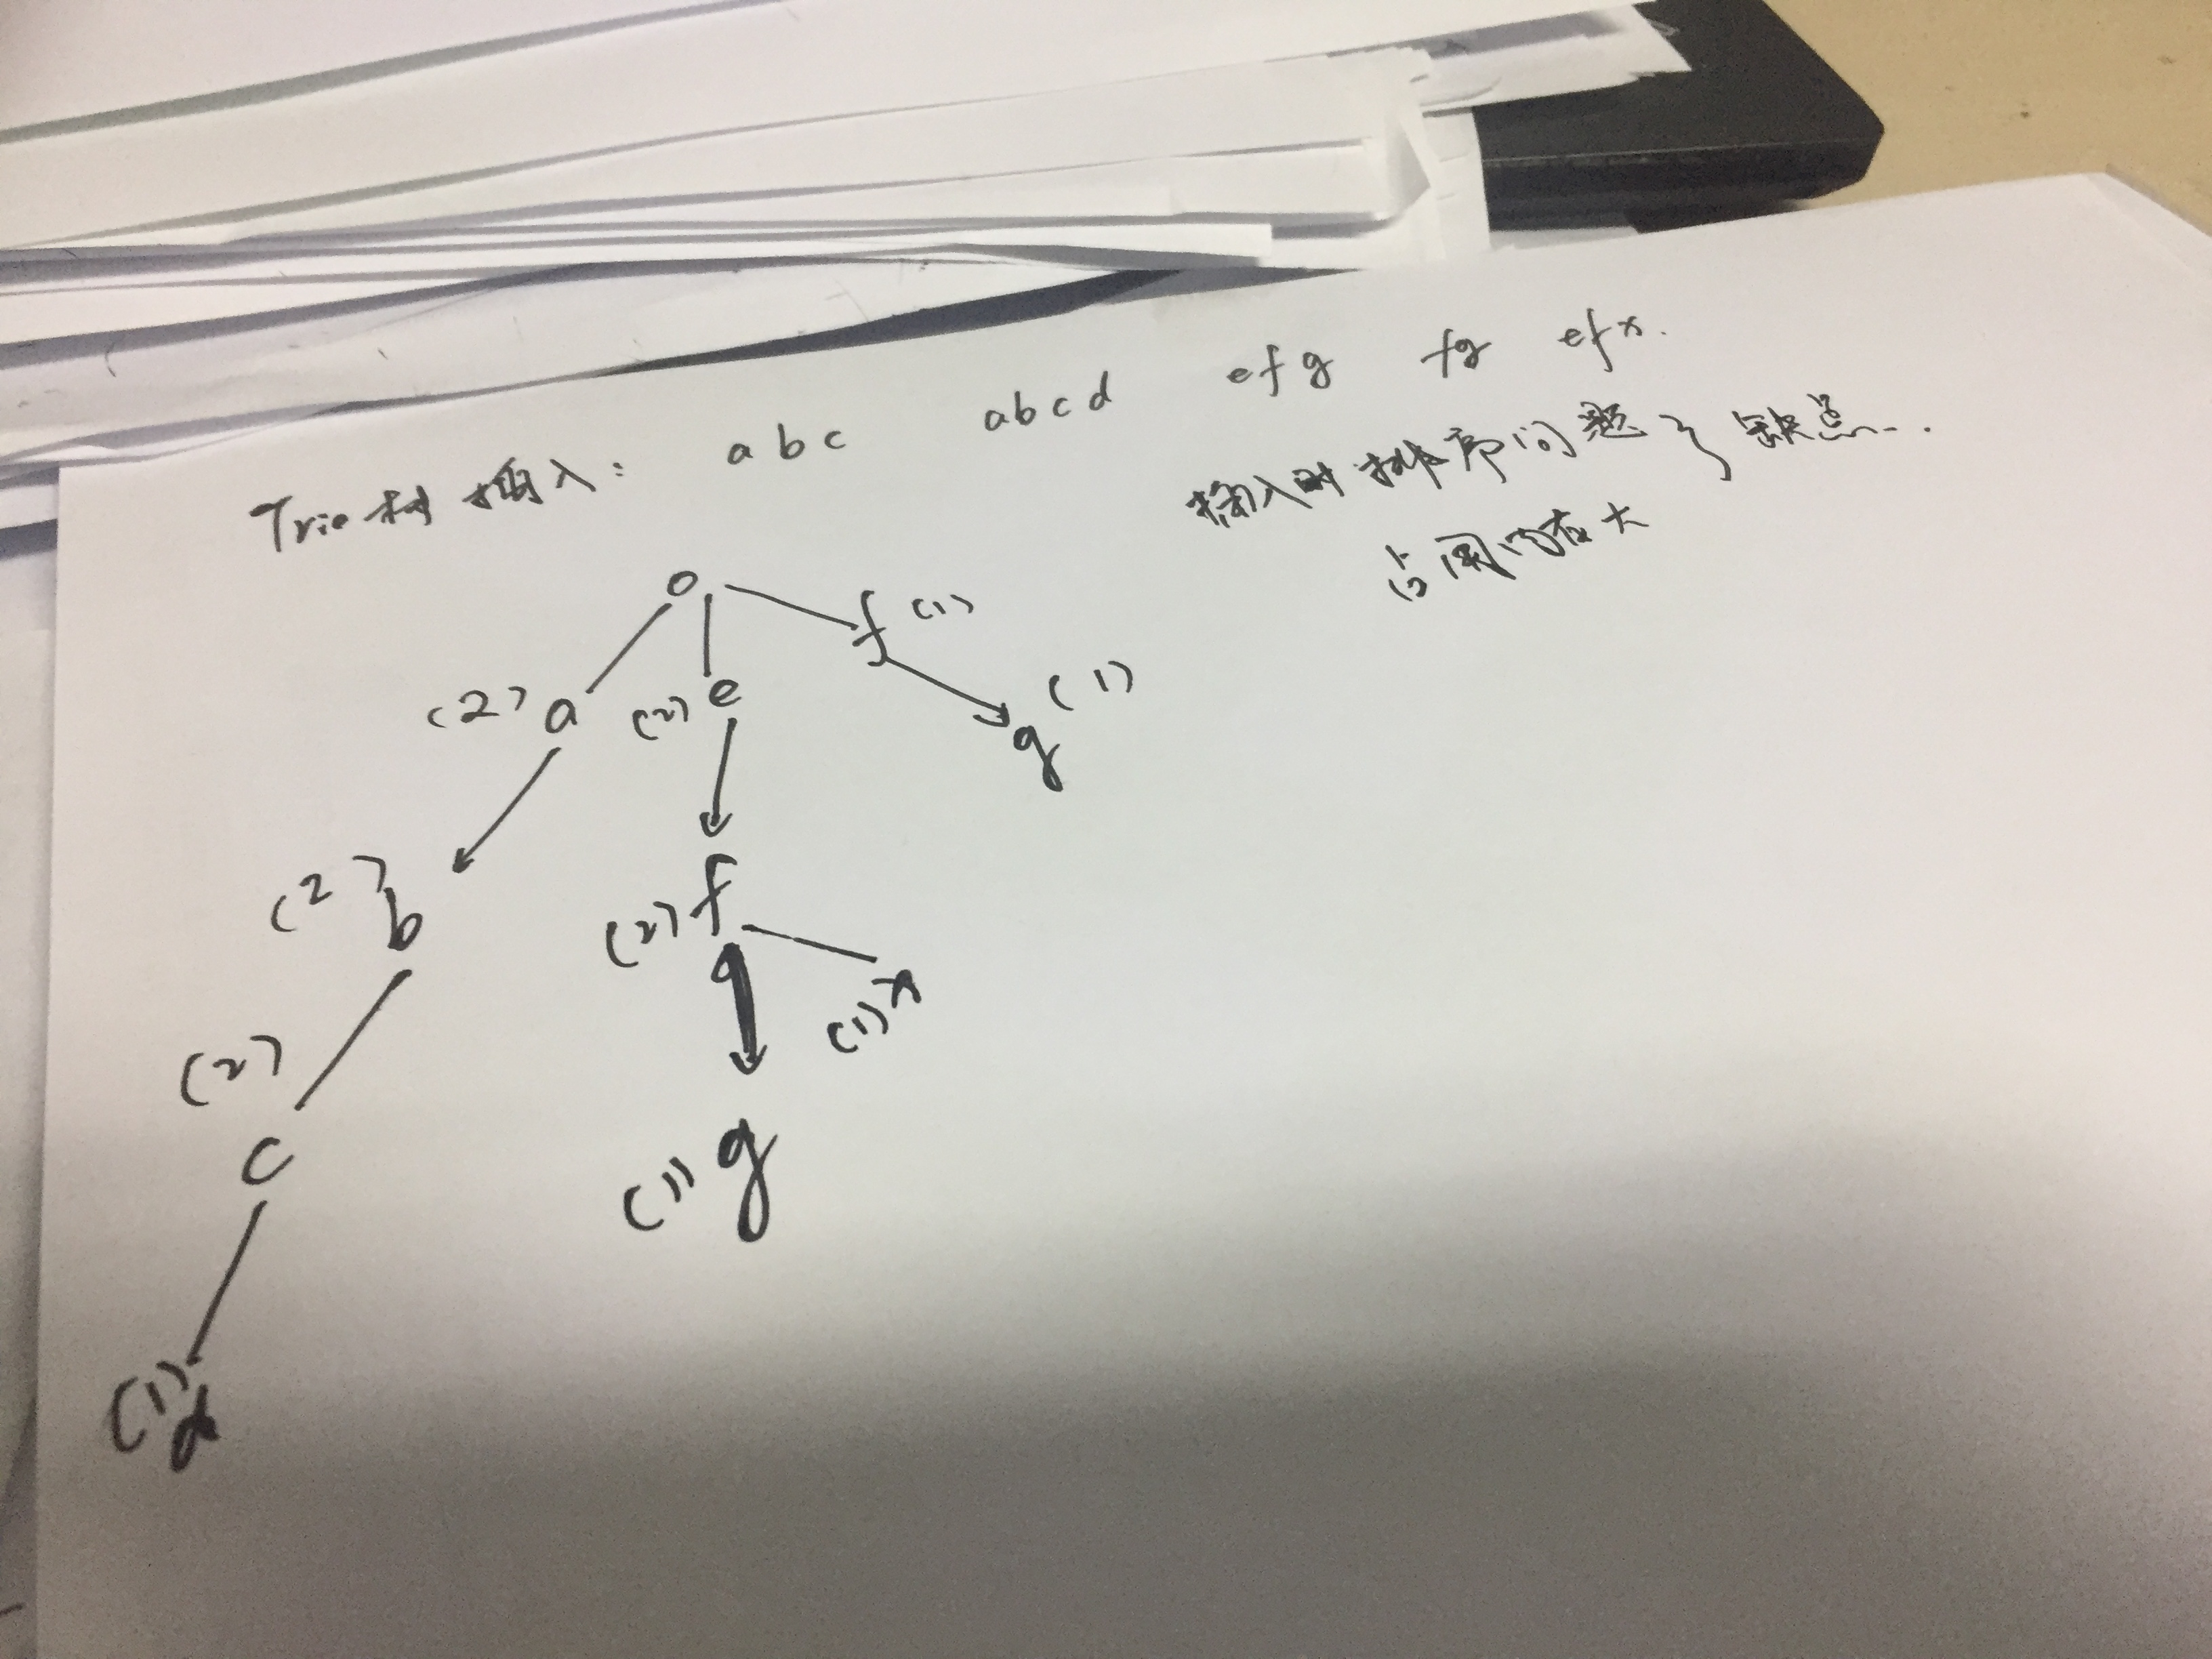 Trie树 插入: abc abcd efg fg efx.
插入时排序问题 } 缺点...
占用内存大
o
f (1)
(2) a (2) e
g (1)
(2) b (2) f
(1) x
(2) c
(1) g
(1) d